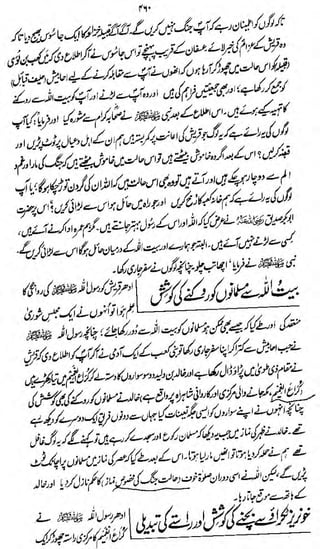 ۴۶۰
تاکہ لوگوں کو اطمینان رہے کہ آپ جنگ نہیں کریں گے۔ آگے آگے قبیلہ خزاعہ کا ایک جاسوس بھیج دیا تاکہ
وہ قریش کے عزائم کی خبر لائے۔ عسفان کے قریب پہنچے تو اس جاسوس نے آکر اطلاع دی کہ میں کعب بن لوئی
کو اس حالت میں چھوڑ کر آرہا ہوں کہ انھوں نے آپ سے مقابلہ کرنے کے لیے احابیش (حلیف قبائل)
کو جمع کر رکھا ہے؛ اور بھی جمعیتیں فراہم کی ہیں۔ اور وہ آپ سے لڑنے اور آپ کو بیت اللہ سے روکنے
کا تہیہ کیے ہوئے ہیں۔ اس اطلاع کے بعد نبی ﷺ نے صحابہ کرام سے مشورہ کیا اور فرمایا "کیا آپ
لوگوں کی یہ رائے ہے کہ یہ لوگ جو قریش کی اعانت پر کمربستہ ہیں ہم ان کے اہل و عیال پر ٹوٹ پڑیں اور
قبضہ کرلیں؟ اس کے بعد اگر وہ خاموش بیٹھتے ہیں تو اس حالت میں خاموش بیٹھتے ہیں کہ جنگ کی مار اور غم و
الم سے دوچار ہو چکے ہیں اور آتے ہیں تو وہ بھی اس حالت میں کہ اللہ ان کی گردن توڑ چکا ہوگا؛ یا آپ
لوگوں کی یہ رائے ہے کہ ہم خانہ کعبہ کا رخ کریں اور جو راہ میں حائل ہو اس سے لڑائی کریں؟" اس پر حضرت
ابوبکر صدیق رضی اللہ عنہ نے عرض کیا کہ اللہ اور اس کے رسول بہتر جانتے ہیں۔ مگر ہم عمرہ ادا کرنے آئے ہیں،
کسی سے لڑنے نہیں آئے ہیں۔ البتہ جو ہمارے اور بیت اللہ کے درمیان حائل ہوگا اس سے لڑائی کریں گے۔
نبی ﷺ نے فرمایا "اچھا تب چلو" چنانچہ لوگوں نے سفر جاری رکھا۔
بیت اللہ سے مسلمانوں کو روکنے کی کوشش
ادھر قریش کو رسول اللہ ﷺ کی روانگی کا
علم ہوا تو انہوں نے ایک مجلس شوریٰ
منعقد کی اور طے کیا کہ جیسے بھی ممکن ہو مسلمانوں کو بیت اللہ سے دور رکھا جائے؛ چنانچہ رسول اللہ ﷺ
نے جب احابیش سے کترا کر اپنا سفر جاری رکھا تو بنی کعب کے ایک آدمی نے آکر آپ کو اطلاع دی کہ قریش
نے مقام ذی طویٰ میں پڑاؤ ڈال رکھا ہے اور خالد بن ولید دو سو سواروں کا دستہ لے کر کراع الغمیم میں تیار کھڑے ہیں
(کراع الغمیم مکہ جانے والی مرکزی اور کاروانی شاہراہ پر واقع ہے) خالد نے مسلمانوں کو روکنے کی بھی کوشش کی
چنانچہ انہوں نے اپنے سواروں کو ایسی جگہ تعینات کیا جہاں سے دونوں فریق ایک دوسرے کو دیکھ رہے
تھے۔ خالد نے ظہر کی نماز میں جب یہ دیکھا کہ مسلمان رکوع اور سجدے کر رہے ہیں تو کہنے لگے کہ یہ لوگ غافل
تھے، ہم نے حملہ کر دیا ہوتا تو انھیں مار لیا ہوتا۔ اس کے بعد طے کیا کہ عصر کی نماز میں مسلمانوں پر اچانک ٹوٹ
پڑیں گے لیکن اللہ نے اسی دوران صلوٰۃ خوف (حالت جنگ کی مخصوص نماز) کا حکم نازل کر دیا اور خالد
کے ہاتھ سے موقع جاتا رہا۔
خونریز ٹکراؤ سے بچنے کی کوشش اور راستے کی تبدیلی
ادھر رسول اللہ ﷺ نے
کراع الغمیم کا مرکزی راستہ چھوڑ کر ایک